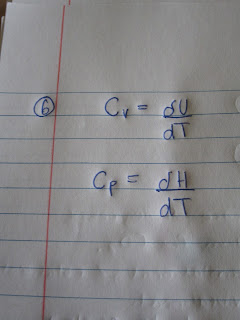 ⑥ Cv = dU/dT
Cp = dH/dT